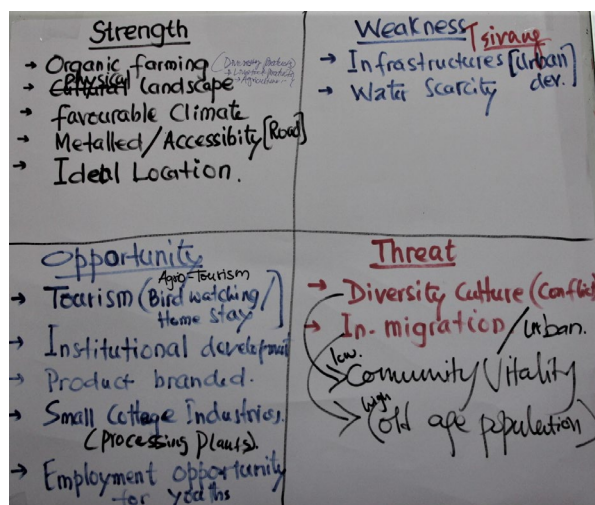 Strength
→ Organic farming
physical
landscape
→ favourable Climate
→ Metalled/Accessibity [Road]
→ Ideal Location.
Weakness
Tsirang
→ Infrastructures [Urban dev.
→ Water Scarcity
Opportunity
Agro-Tourism
→ Tourism (Bird watching/
Home stay
→ Institutional development
→ Product branded.
→ Small Cottage Industries.
(Processing Plants).
→ Employment opportunity
for youths
Threat
→ Diversity Culture (Conflict
→ In-migration / Urban.
low.
Comunity Vitality
high
(old age population)